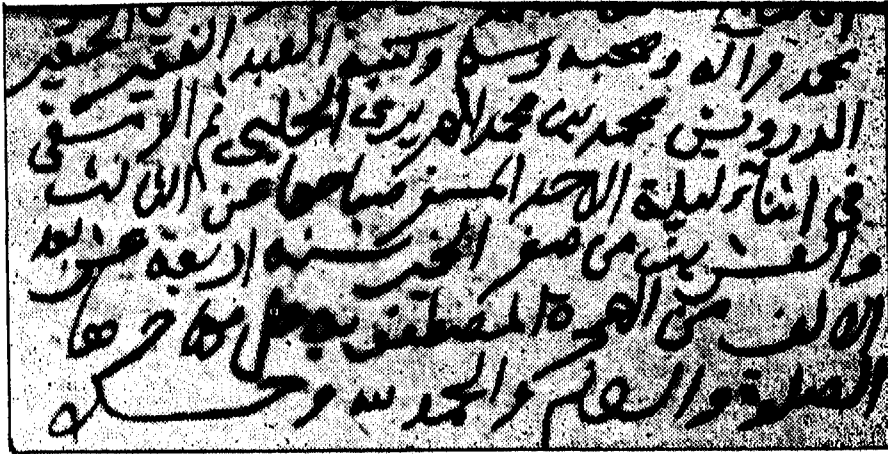 محمد واله وصحبه وسلم وكتبه العبد الفقير الحقير
الدرويش محمد بن محمد الحريري الحلبي ثم الدمشقي
في اثناء ليلة الاحد المسفر صباحها عن الثالث
والعشرين من صفر الخير سنة اربعة عشر بعد
الالف من الهجرة المصطفوية على
الصلوة والسلام والحمد لله وحده